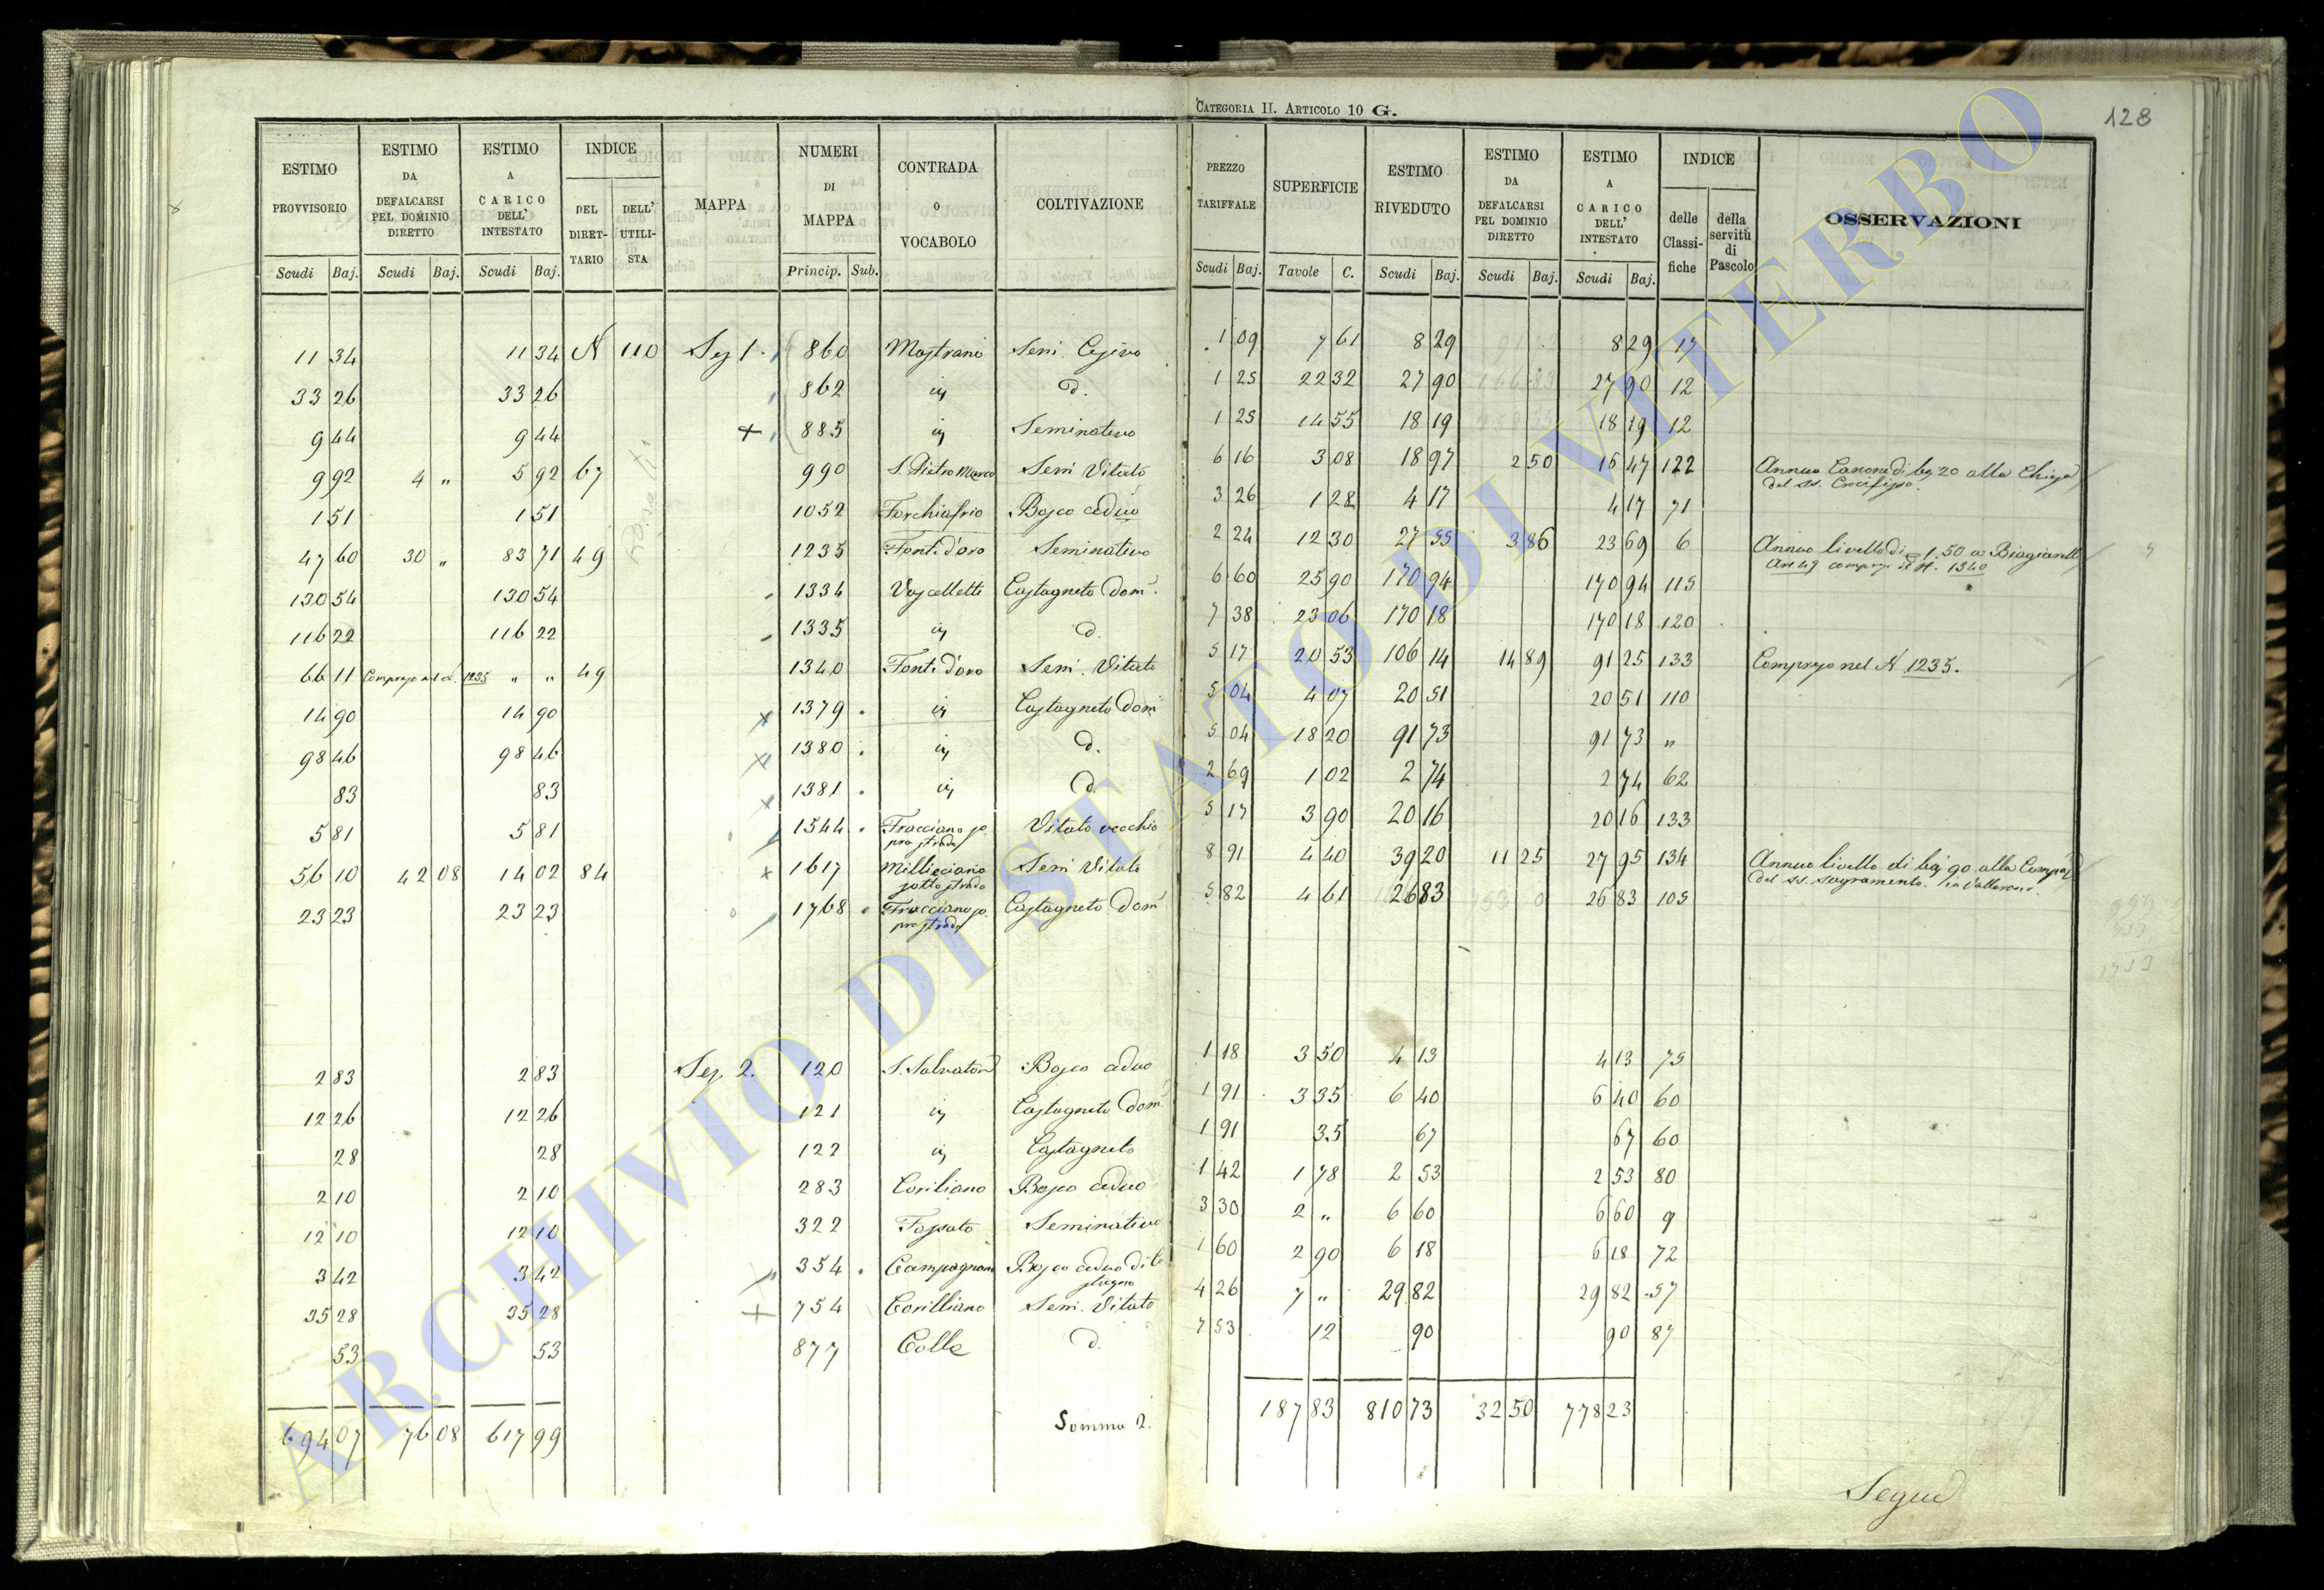 CATEGORIA II. ARTICOLO 10 G.
128
ESTIMO PROVVISORIO Scudi Baj.
ESTIMO DA DEFALCARSI PEL DOMINIO DIRETTO Scudi Baj.
ESTIMO A CARICO DELL' INTESTATO Scudi Baj.
INDICE DEL DIRETTARIO DELL' UTILISTA
MAPPA
NUMERI DI MAPPA Princip. Sub.
CONTRADA O VOCABOLO
COLTIVAZIONE
PREZZO TARIFFALE Scudi Baj.
SUPERFICIE Tavole C.
ESTIMO RIVEDUTO Scudi Baj.
ESTIMO DA DEFALCARSI PEL DOMINIO DIRETTO Scudi Baj.
ESTIMO A CARICO DELL' INTESTATO Scudi Baj.
INDICE delle Classifiche della servitù di Pascolo
OSSERVAZIONI
11 34 11 34 N 110 Sez 1. 860 Mastrano Semi. 1 09 7 61 8 29 8 29 17
33 26 33 26 862 d. 1 25 22 32 27 90 27 90 12
9 44 9 44 885 Seminativo 1 25 14 55 18 19 18 19 12
9 92 4 „ 5 92 67 990 S. Pietro Semi Vitato 6 16 3 08 18 97 2 50 16 47 122 Annuo Canone di bj 20 alla Chiesa
del SS. Crocifisso.
1 51 1 51 1052 Forchiafrio Bosco ceduo 3 26 1 28 4 17 4 17 71
47 60 30 „ 83 71 49 1235 Font. d'oro Seminativo 2 24 12 30 27 55 3 86 23 69 6 Annuo livello di 1.50 a
Art 49 compreso il N. 1340
130 54 130 54 1334 Vascelletti Castagneto Dom. 6 60 25 90 170 94 170 94 115
116 22 116 22 1335 d. 7 38 23 06 170 18 170 18 120
66 11 Compreso nel N. 1235 „ „ 49 1340 Font. d'oro Semi. Vitato 5 17 20 53 106 14 14 89 91 25 133 Compreso nel N 1235.
14 90 14 90 1379 Castagneto Dom 5 04 4 07 20 51 20 51 110
98 46 98 46 1380 d. 5 04 18 20 91 73 91 73 „
83 83 1381 d. 2 69 1 02 2 74 2 74 62
5 81 5 81 1544 Fracciano so
pra strada Vitato vecchio 5 17 3 90 20 16 20 16 133
56 10 42 08 14 02 84 1617 Millieciano
sotto strada Semi Vitato 8 91 4 40 39 20 11 25 27 95 134 Annuo livello di baj 90 alla
del SS. Sagramento. in Vallerano.
23 23 23 23 1768 Fracciano so
pra strada Castagneto Dom 5 82 4 61 26 83 26 83 105
2 83 2 83 Sez. 2. 120 S. Salvatore Bosco ceduo 1 18 3 50 4 13 4 13 75
12 26 12 26 121 Castagneto Dom. 1 91 3 35 6 40 6 40 60
28 28 122 Castagneto 1 91 35 67 67 60
2 10 2 10 283 Coriliano Bosco ceduo 1 42 1 78 2 53 2 53 80
12 10 12 10 322 Fossato Seminativo 3 30 2 „ 6 60 6 60 9
3 42 3 42 354 Campagnano Bosco ceduo di Ca
stagno 1 60 2 90 6 18 6 18 72
35 28 35 28 754 Corilliano Semi. Vitato 4 26 7 „ 29 82 29 82 57
53 53 877 Colle d. 7 53 12 90 90 87
694 07 76 08 617 99 Somma 2. 187 83 810 73 32 50 778 23
Segue
ARCHIVIO DI STATO DI VITERBO